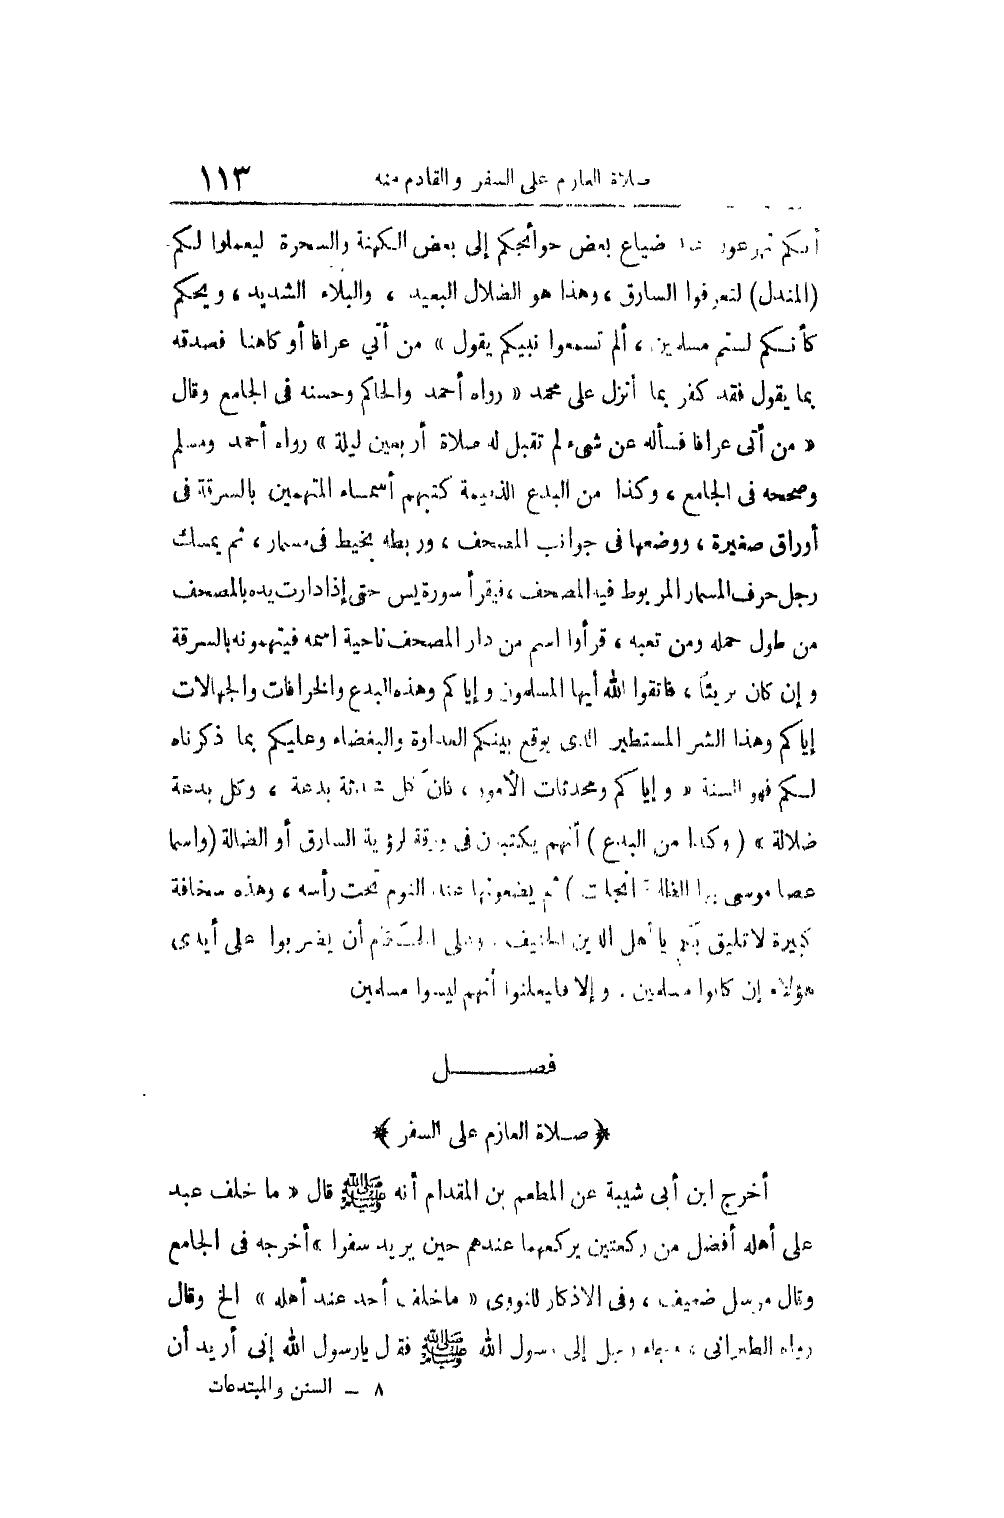 صلاة العازم على السفر والقادم منه ١١٣
أنكم تهرعون عند ضياع بعض حوائجكم إلى بعض الكهنة والسحرة ليعملوا لكم
(المندل) لتعرفوا السارق ، وهذا هو الضلال البعيد ، والبلاء الشديد ، ويحكم
كأنكم لستم مسلمين ، ألم تسمعوا نبيكم يقول » من أتى عرافا أو كاهنا فصدقه
بما يقول فقد كفر بما أنزل على محمد « رواه أحمد والحاكم وحسنه فى الجامع وقال
« من أتى عرافا فسأله عن شىء لم تقبل له صلاة أربعين ليلة » رواه أحمد ومسلم
وصححه فى الجامع ، وكذا من البدع الذميمة كتبهم أسماء المتهمين بالسرقة فى
أوراق صغيرة ، ووضعها فى جوانب المصحف ، وربطه بخيط فى مسمار ، ثم يمسك
رجل حرف المسمار المربوط فيه المصحف ، فيقرأ سورة يس حتى إذا دارت يده بالمصحف
من طول حمله ومن تعبه ، قرأوا اسم من دار المصحف ناحية اسمه فيتهمونه بالسرقة
وإن كان بريئاً ، فاتقوا الله أيها المسلمون وإياكم وهذه البدع والخرافات والجهالات
إياكم وهذا الشر المستطير الذى يوقع بينكم العداوة والبغضاء وعليكم بما ذكرناه
لكم فهو السنة « وإياكم ومحدثات الأمور ، فان كل محدثة بدعة ، وكل بدعة
ضلالة » ( وكذا من البدع ) أنهم يكتبون فى ورقة لرؤية السارق أو الضالة (واسما
عصا موسى بها الظلمة انجلت ) ثم يضعونها عند النوم تحت رأسه ، وهذه سخافة
كبيرة لا تليق بكم يا أهل الدين الحنيف . وعلى الحكام أن يضربوا على أيدى
هؤلاء إن كانوا مسلمين . وإلا فليعلنوا أنهم ليسوا مسلمين
فصــــــل
﴿ صلاة العازم على السفر ﴾
أخرج ابن أبى شيبة عن المطعم بن المقدام أنه ﷺ قال « ما خلف عبد
على أهله أفضل من ركعتين يركعهما عندهم حين يريد سفرا » أخرجه فى الجامع
وقال مرسل ضعيف ، وفى الاذكار للنووى « ما خلف أحد عند أهله » الخ وقال
رواه الطبرانى ، وجاء رجل إلى رسول الله ﷺ فقال يارسول الله إنى أريد أن
٨ – السنن والمبتدعات